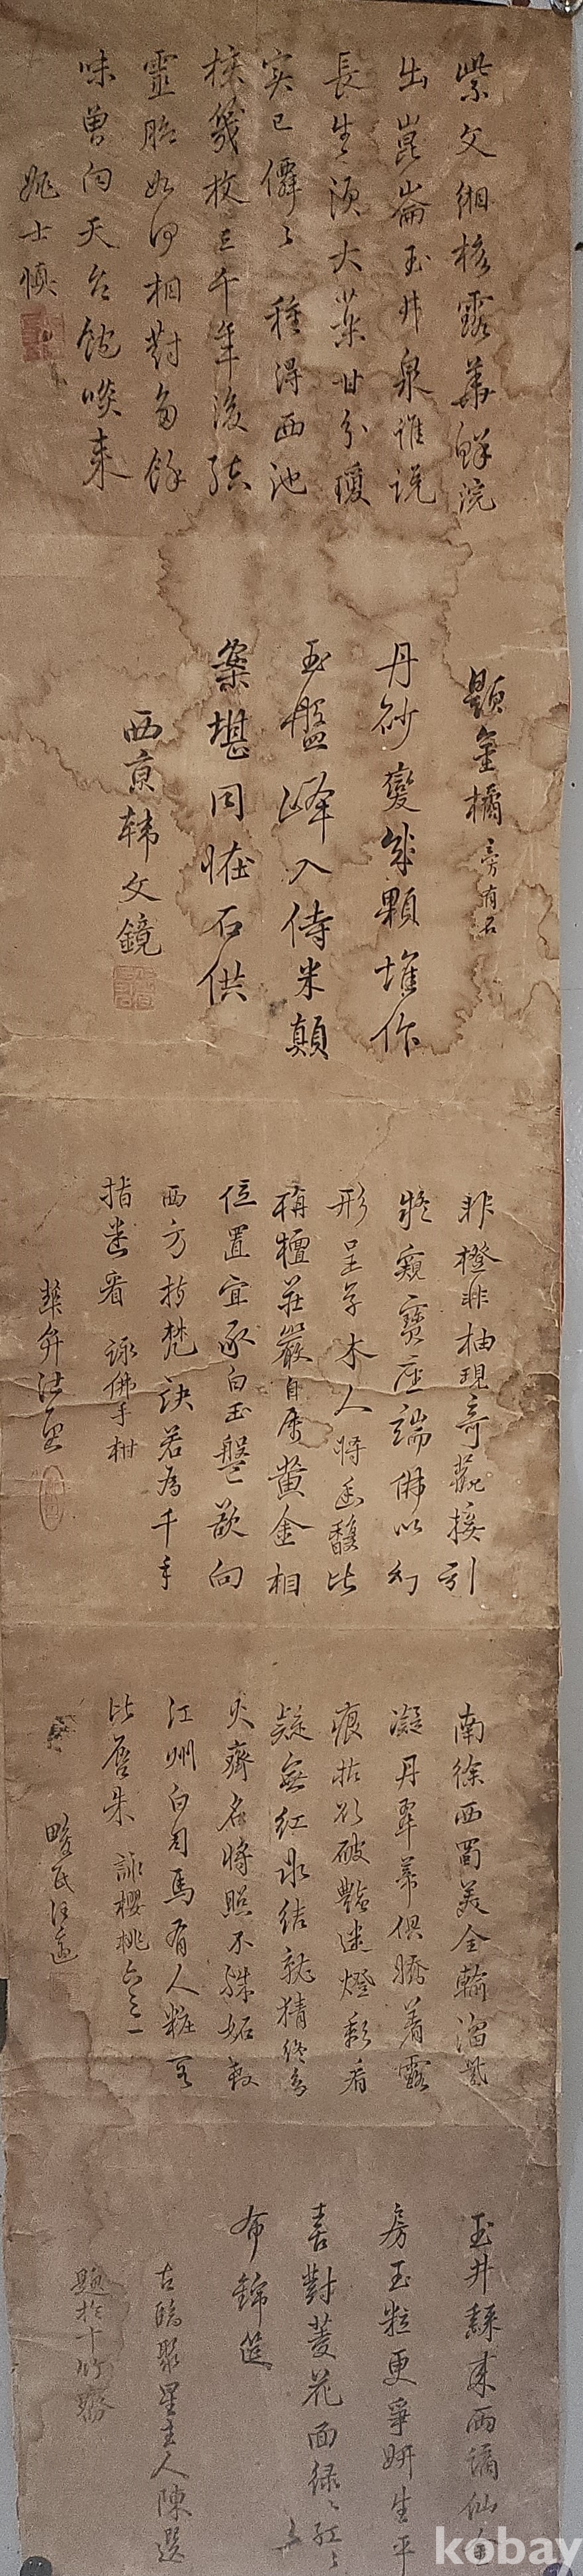 紫文緗核露華鮮浣
出崑崙玉井泉誰說
長生須大藥甘分瓊
實已僊〻種得西池
核幾枚三千年後結
靈胎如何相對多餘
味曾向天台飽啖來
姚士慎
題金橘旁有石
丹砂變幾顆堆作
玉盤峰入侍米顛
案堪同怪石供
西京韩文鏡
非橙非柚現奇葩接引
疑窺寶座端佛以幻
形呈草木人將幽馥比
栴檀莊嚴自屬黃金相
位置宜承白玉盤欲向
西方持梵訣若為千手
指迷看 詠佛手柑
南徐西蜀美全輸溜氣
凝丹翠蒂俱勝著露
痕拈欲破豔迷燈影看
疑無紅冰結就猜終為
火齊名將照不殊妬殺
江州白司馬有人粧罷
比唇朱 詠櫻桃六之一
玉井穌來西謫仙
房玉粒更爭妍生平
喜對菱花面綠〻紅〻
布錦筵
古臨聚星主人陳選
題於十竹齋
kobay